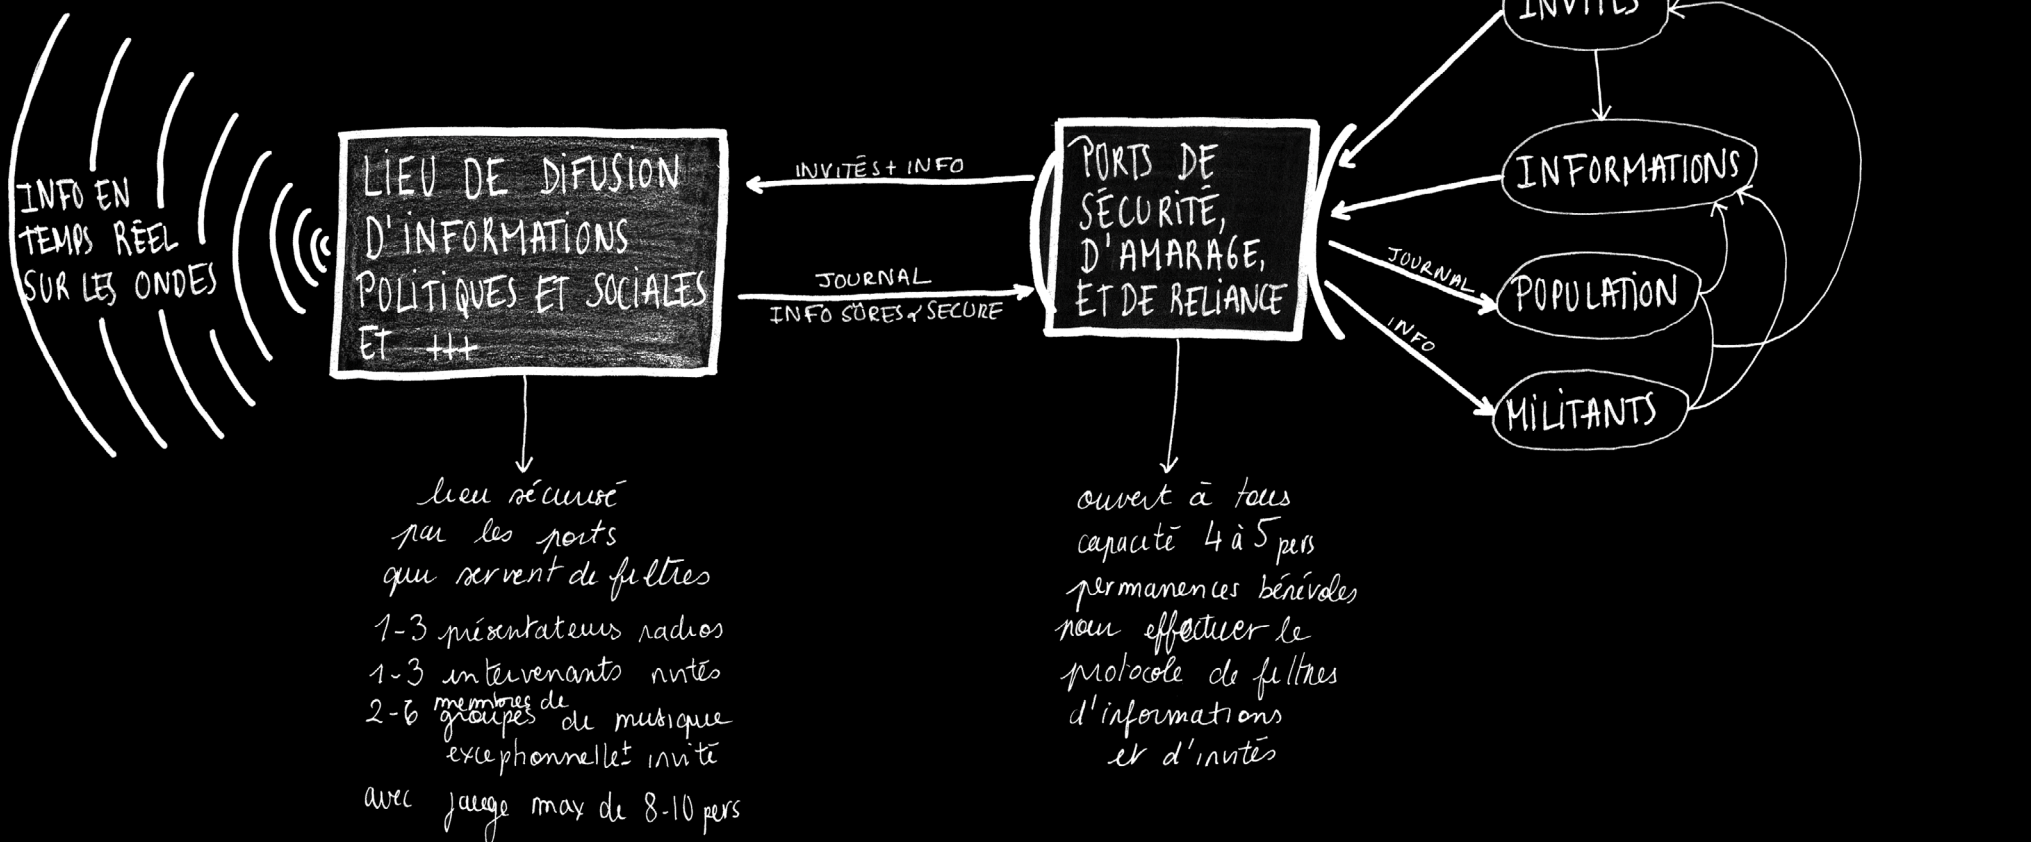 INFO EN
TEMPS RÉEL
SUR LES ONDES
LIEU DE DIFUSION
D'INFORMATIONS
POLITIQUES ET SOCIALES
ET +++
INVITÉS + INFO
JOURNAL
INFO SÛRES & SECURE
PORTS DE
SÉCURITÉ,
D'AMARAGE,
ET DE RELIANCE
INVITÉS
INFORMATIONS
JOURNAL
POPULATION
INFO
MILITANTS
lieu sécurisé
par les ports
qui servent de filtres
1-3 présentateurs radios
1-3 intervenants invités
2-6 membres de
groupes de musique
exceptionnellet invité
avec jauge max de 8-10 pers
ouvert à tous
capacité 4 à 5 pers
permanences bénévoles
pour effectuer le
protocole de filtres
d'informations
et d'invités